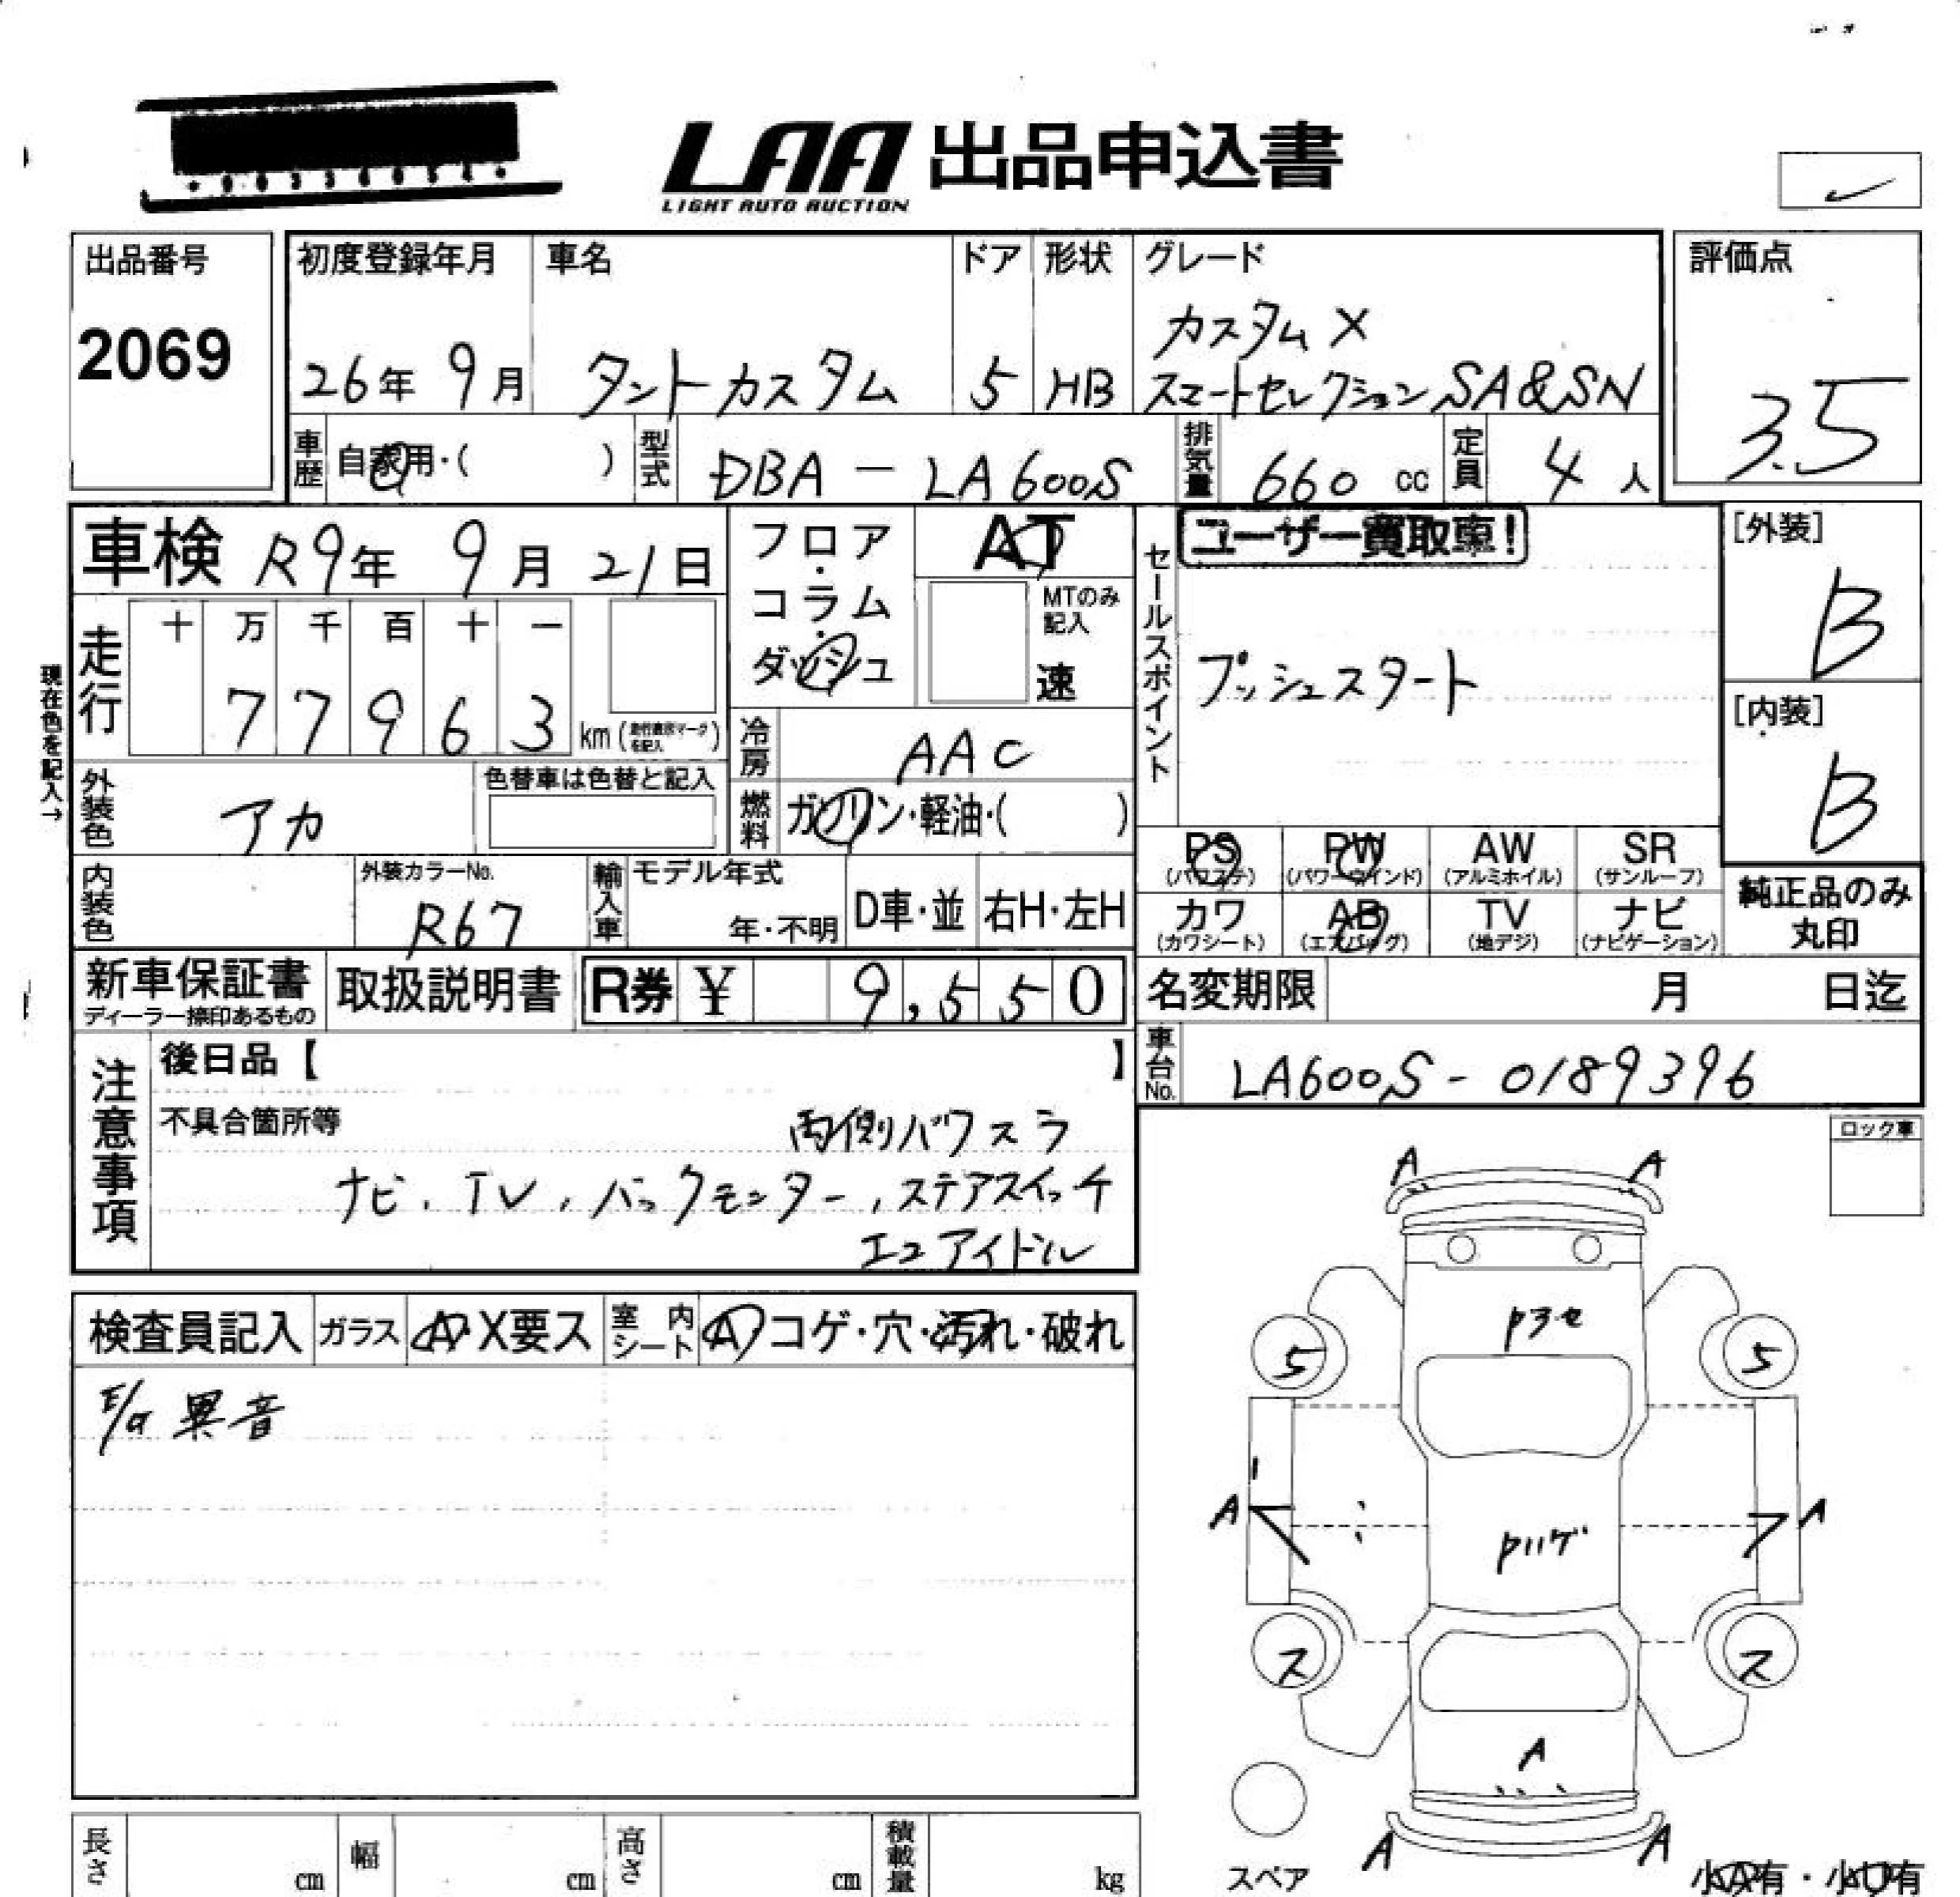 LAA 出品申込書
LIGHT AUTO AUCTION
出品番号
2069
初度登録年月
26年 9月
車名
タントカスタム
ドア
5
形状
HB
グレード
カスタムX
スマートセレクションSA&SN
評価点
3.5
車歴
自家用・( )
型式
DBA - LA600S
排気量
660 cc
定員
4 人
車検 R9年 9月 21日
フロア・コラム・ダッシュ
AT
MTのみ記入
速
セールスポイント
ユーザー買取車!
プッシュスタート
[外装]
B
[内装]
B
現在色を記入→
走行
十 万 千 百 十 一
7 7 9 6 3 km
冷房
AAC
外装色
アカ
色替車は色替と記入
燃料
ガソリン・軽油・( )
PS (パワステ)
PW (パワーウインド)
AW (アルミホイル)
SR (サンルーフ)
カワ (カワシート)
AB (エアバッグ)
TV (地デジ)
ナビ (ナビゲーション)
純正品のみ丸印
内装色
外装カラーNo.
R67
輸入車
モデル年式
年・不明
D車・並
右H・左H
新車保証書
ディーラー捺印あるもの
取扱説明書
R券 ¥ 9,550
名変期限 月 日迄
車台No.
LA600S - 0189396
注意事項
後日品【 】
不具合箇所等
両側パワスラ
ナビ、TV、バックモニター、ステアスイッチ
エコアイドル
ロック車
検査員記入
ガラス
A・X要ス
室内シート
A コゲ・穴・汚れ・破れ
E/g 異音
A A
P3セ
5 5
A A
Pハゲ
ス ス
A
A A
スペア
小A有・小U有
長さ cm
幅 cm
高さ cm
積載量 kg